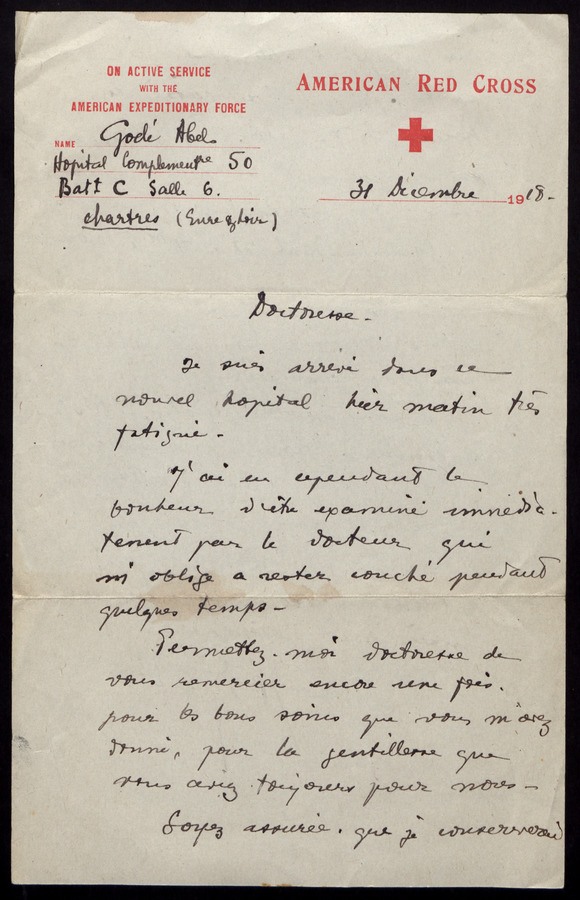 ON ACTIVE SERVICE
WITH THE
AMERICAN EXPEDITIONARY FORCE
AMERICAN RED CROSS
NAME Godé Abel
Hopital Complementre 50
Batt C Salle 6.
chartres (Eure & Loir)
31 Décembre 1918.
Doctoresse -
Je suis arrivé dans ce
nouvel hopital hier matin très
fatigué -
J'ai eu cependant le
bonheur d'être examiné immédia-
tement par le docteur qui
m'oblige a rester couché pendant
quelques temps -
Permettez-moi doctoresse de
vous remercier encore une fois.
pour les bons soins que vous m'avez
donné, pour la gentillesse que
vous avez toujours pour nous -
Soyez assurée. que je conserverai